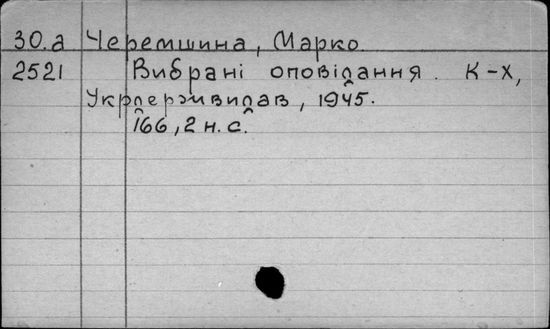 30.а Черемшина, Марко
2521 Вибрані оповідання. К-Х,
Укрдержвидав, 1945.
166, 2 н. с.